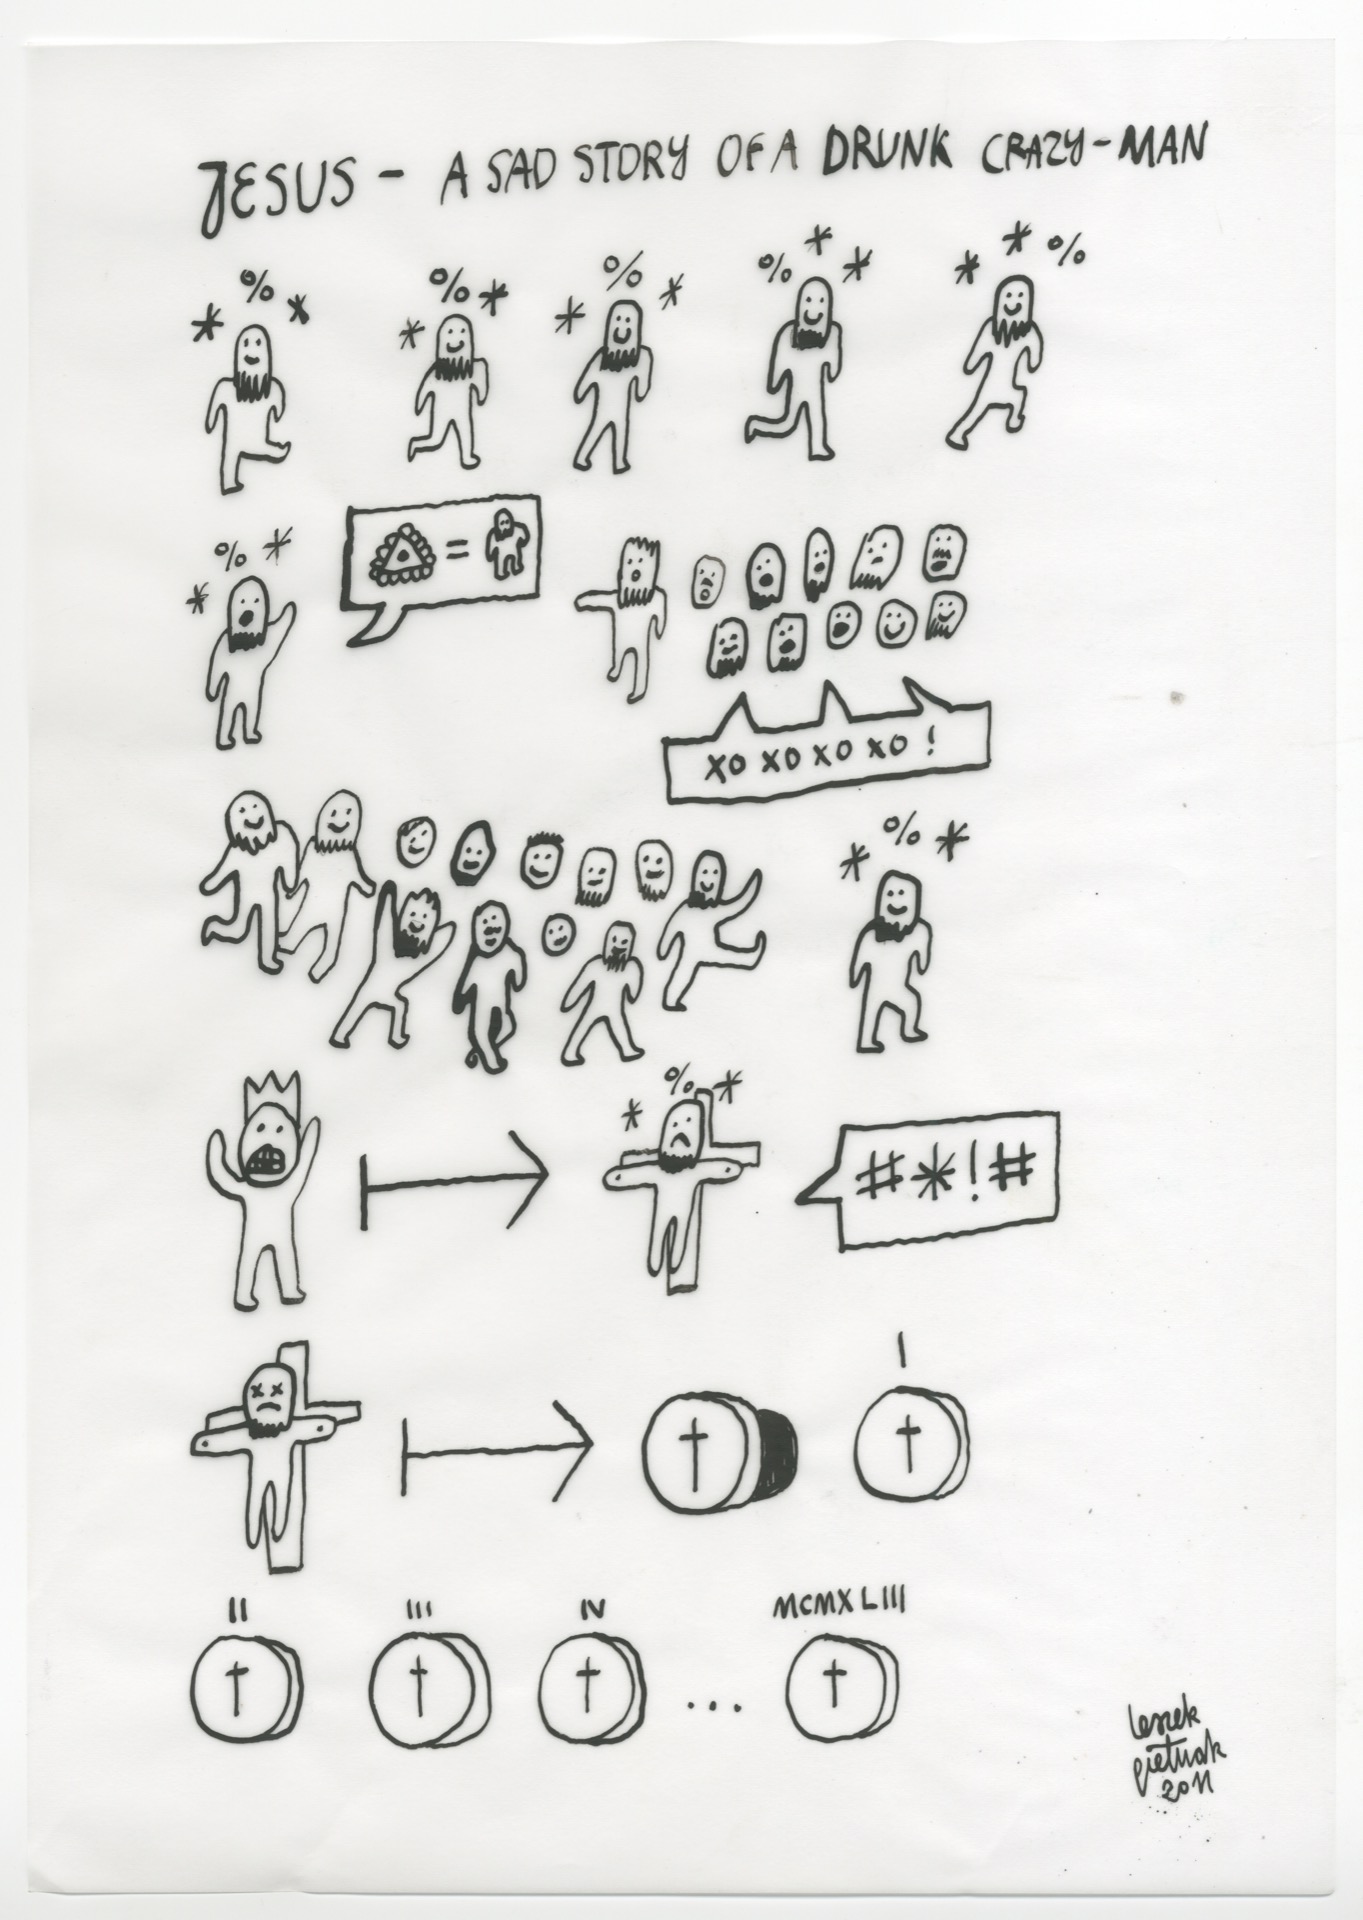 JESUS - A SAD STORY OF A DRUNK CRAZY-MAN
* % *
* % *
* % *
% * *
* * %
* % *
=
XO XO XO XO !
* % *
* % *
#*!#
I
II
III
IV
...
MCMXLIII
leszek
pietrzak
2011